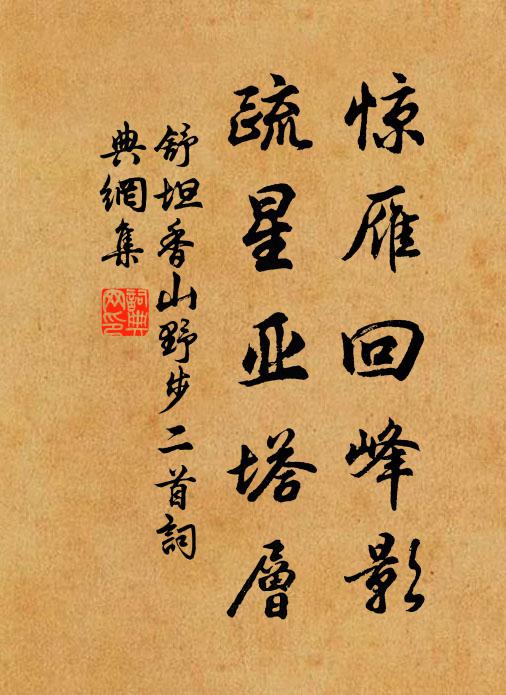 惊雁回峰影
疏星亚塔層
舒坦香山野步二首詞
典網集
詞典
网印